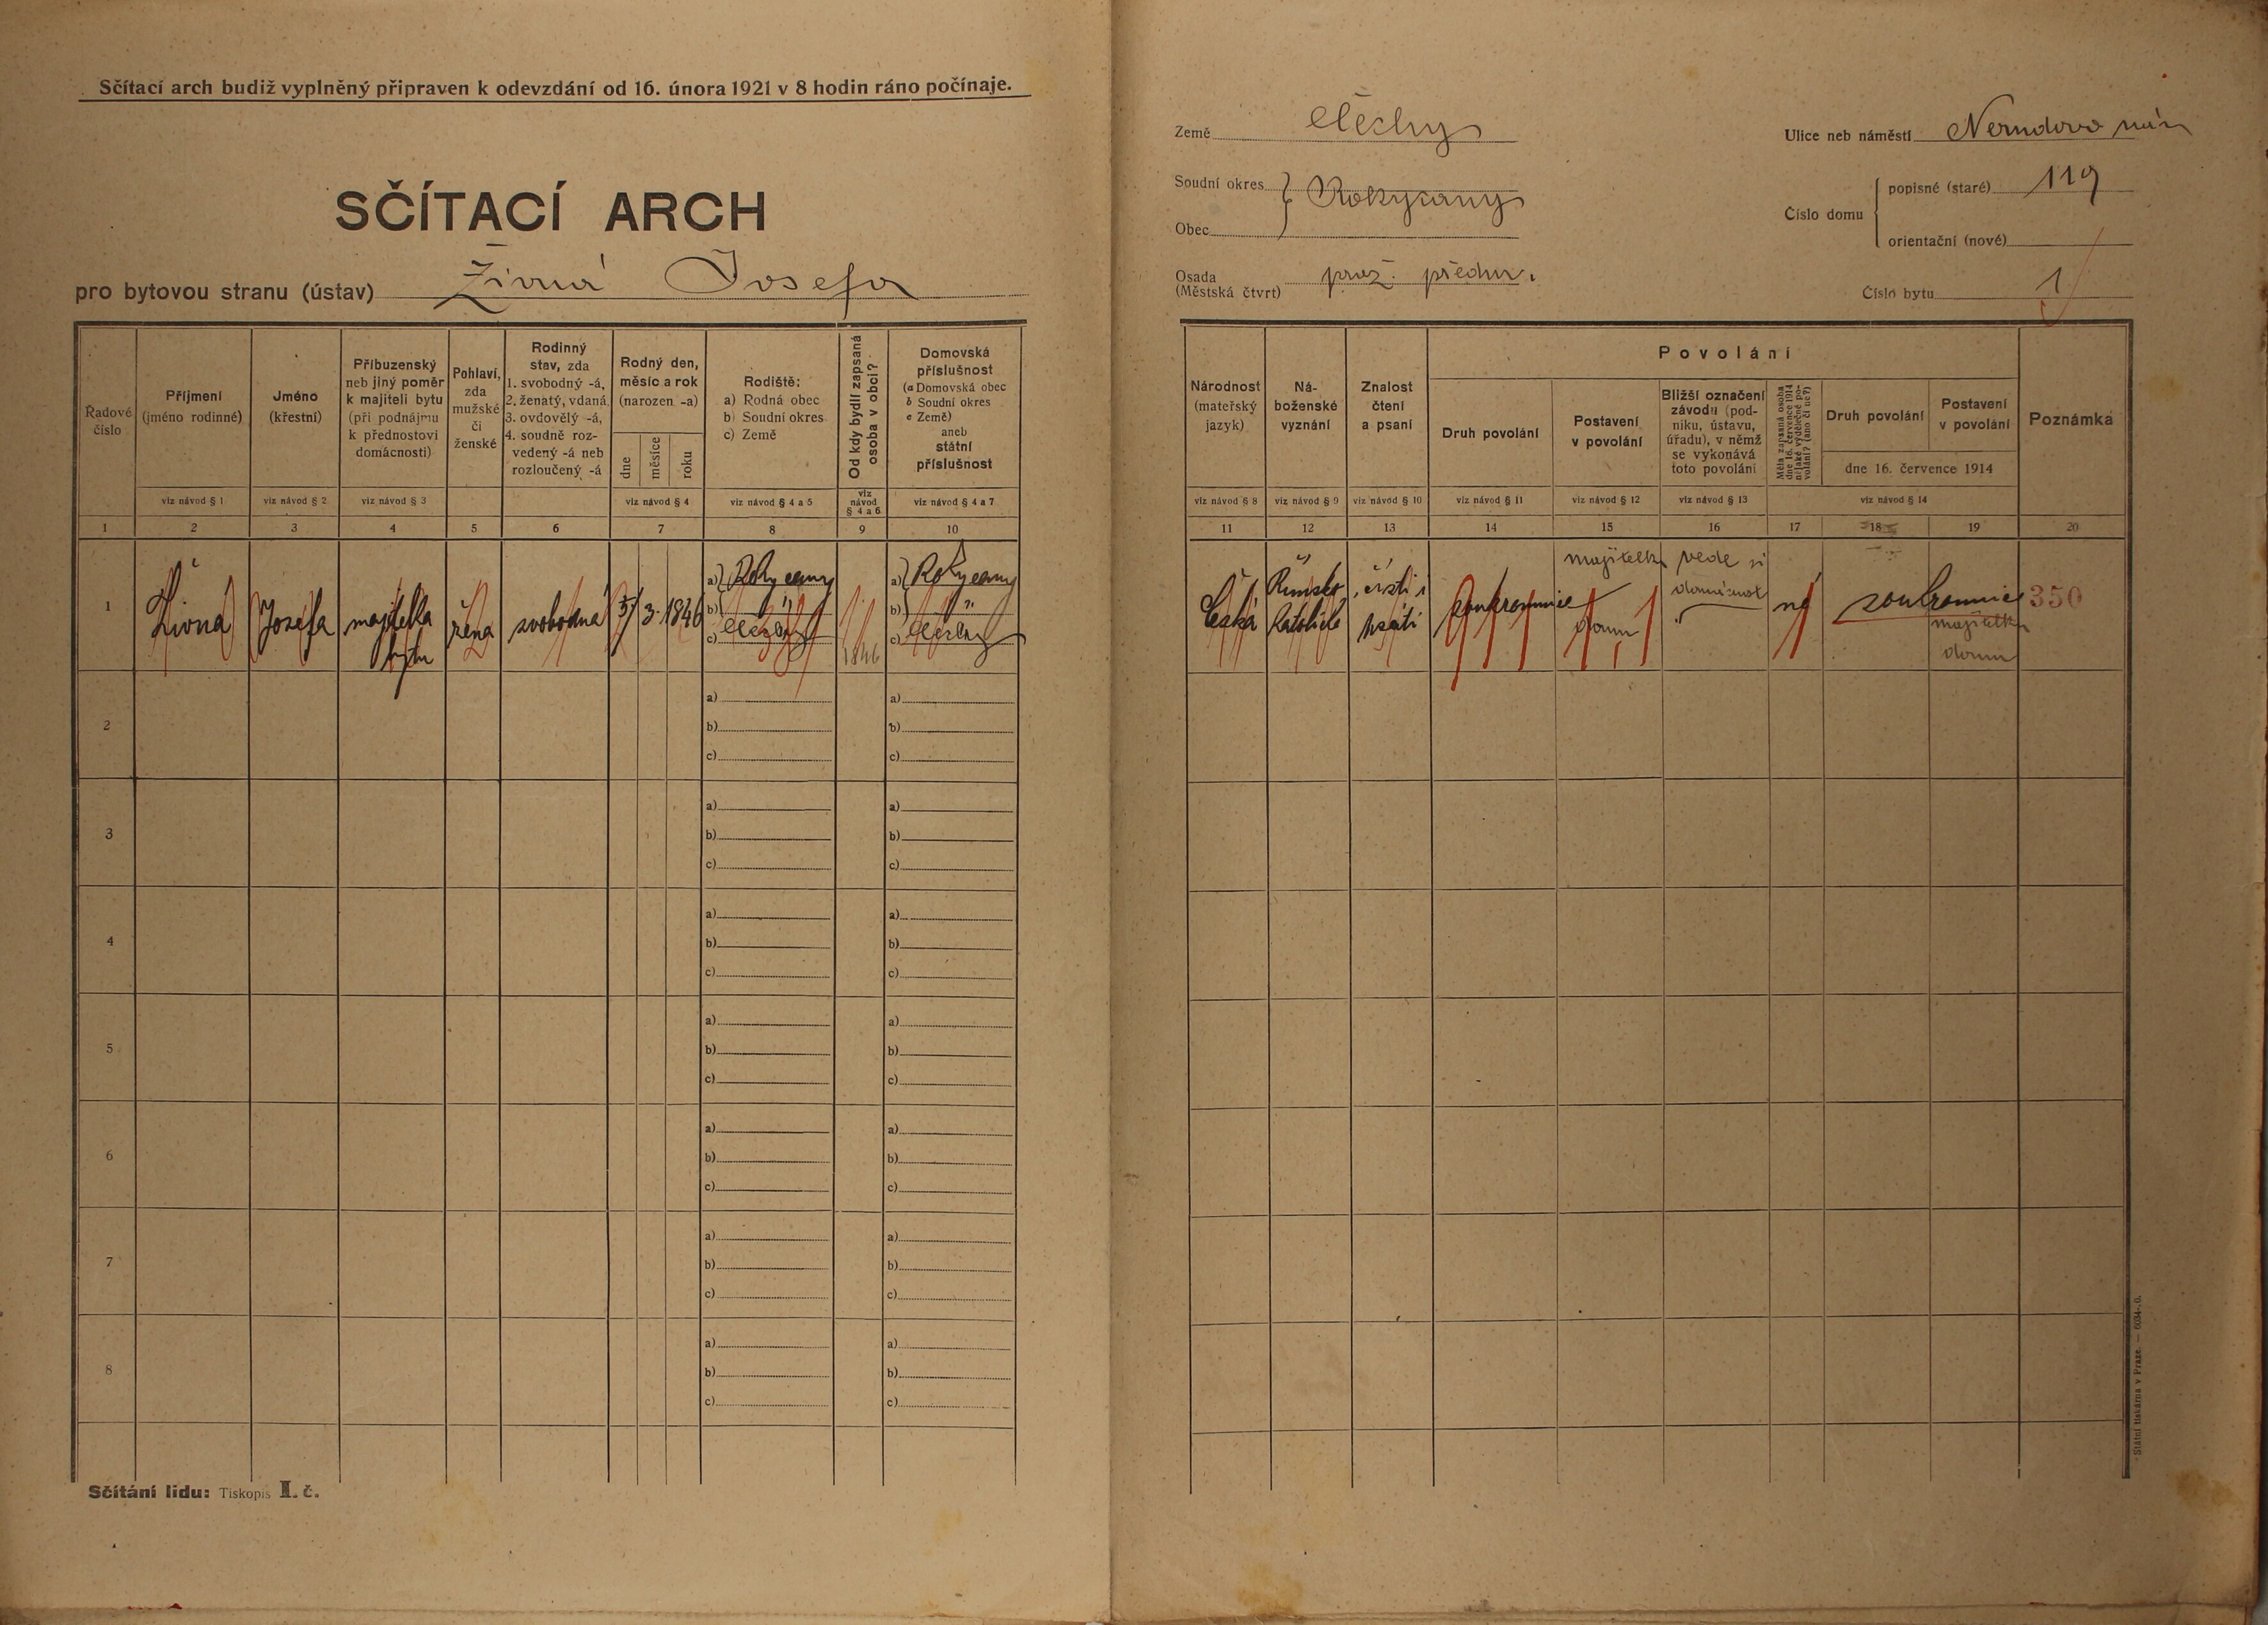 Sčítací arch budiž vyplněný připraven k odevzdání od 16. února 1921 v 8 hodin ráno počínaje.
SČÍTACÍ ARCH
pro bytovou stranu (ústav) Živná Josefa
Země Čechy
Soudní okres } Rokycany
Obec
Osada (Městská čtvrt) praž. předm.
Ulice neb náměstí Nerudovo nám
Číslo domu { popisné (staré) 119
orientační (nové)
Číslo bytu 1
Řadové číslo
Příjmení (jméno rodinné)
Jméno (křestní)
Příbuzenský neb jiný poměr k majiteli bytu (při podnájmu k přednostovi domácnosti)
Pohlaví, zda mužské či ženské
Rodinný stav, zda 1. svobodný -á, 2. ženatý, vdaná, 3. ovdovělý -á, 4. soudně rozvedený -á neb rozloučený -á
Rodný den, měsíc a rok (narozen -a)
dne měsíce roku
Rodiště:
a) Rodná obec
b) Soudní okres
c) Země
Od kdy bydlí zapsaná osoba v obci?
Domovská příslušnost
(a Domovská obec
b Soudní okres
c Země)
aneb
státní příslušnost
viz návod § 1 viz návod § 2 viz návod § 3 viz návod § 4 viz návod § 4 a 5 viz návod § 4 a 6 viz návod § 4 a 7
1 2 3 4 5 6 7 8 9 10
Národnost (mateřský jazyk)
Náboženské vyznání
Znalost čtení a psaní
Povolání
Druh povolání
Postavení v povolání
Bližší označení závodu (podniku, ústavu, úřadu), v němž se vykonává toto povolání
Měla zapsaná osoba dne 16. července 1914 nějaké výdělečné povolání? (ano či ne?)
Druh povolání
Postavení v povolání
dne 16. července 1914
Poznámka
viz návod § 8 viz návod § 9 viz návod § 10 viz návod § 11 viz návod § 12 viz návod § 13 viz návod § 14
11 12 13 14 15 16 17 18 19 20
1 Živná Josefa majitelka bytu žena svobodná 3 1846
a) Rokycany
b) "
c) Čechy
1846
a) Rokycany
b) "
c) Čechy
Česká Římsko Katolické čísti i psáti soukromnice majitelk domu vede si domácnost ne soukromnice majitelka domu 350
2
a) a)
b) b)
c) c)
3
a) a)
b) b)
c) c)
4
a) a)
b) b)
c) c)
5
a) a)
b) b)
c) c)
6
a) a)
b) b)
c) c)
7
a) a)
b) b)
c) c)
8
a) a)
b) b)
c) c)
Sčítání lidu: Tiskopis I. č.
Státní tiskárna v Praze.